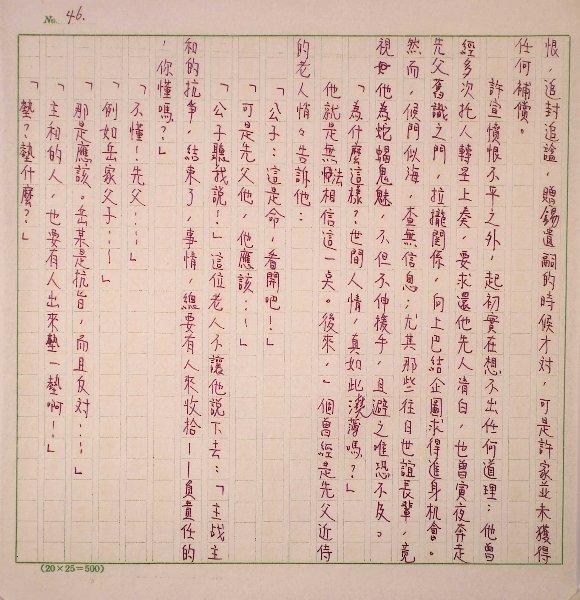 No. 46.
恨，追封追諡，贈錫遺嗣的時候才对，可是許家並未獲得
任何補償。
許宣憤恨不平之外，起初實在想不出任何道理：他曾
經多次托人轉呈上奏，要求還他先人清白，也曾寅夜奔走
先父舊識之門，拉攏関係，向上巴結企圖求得進身机會。
然而，侯門似海，杳無信息；尤其那些往日世誼長輩，竟
視如他為蛇蝎鬼魅，不但不伸援手，且避之唯恐不及。
「為什麼這樣？世間人情，真如此澆薄嗎？」
他就是無法相信這一点。後來，一個曾經是先父近侍
的老人悄々告訴他：
「公子：這是命，看開吧！」
「可是先父他，他應該…！」
「公子聽我說！」這位老人不讓他說下去：「主战主
和的抗爭，結束了，事情，總要有人來收拾——負責任的
，你懂嗎？」
「不懂！先父…！」
「例如岳家父子…！」
「那是應該。岳某是抗旨，而且反对…！」
「主和的人，也要有人出來墊一墊啊！」
「墊？墊什麼？」
(20×25=500)